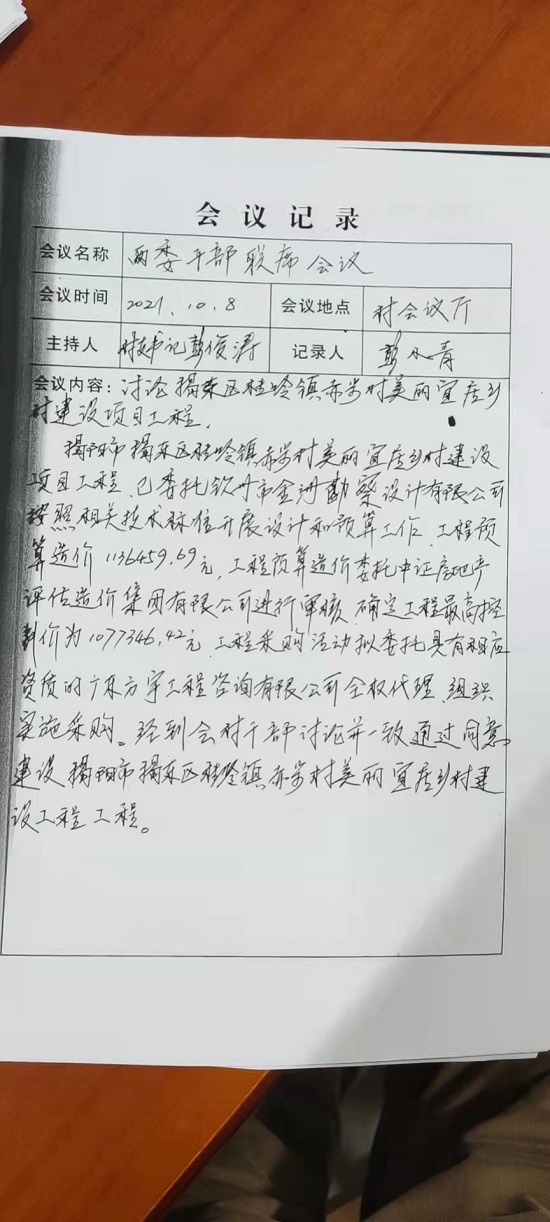 会议记录
会议名称 两委干部联席会议
会议时间 2021.10.8 会议地点 村会议厅
主持人 村支书记彭俊涛 记录人 彭 青
会议内容:讨论揭东区桂岭镇赤岸村美丽宜居乡
村建设项目工程.
揭阳市揭东区桂岭镇赤岸村美丽宜居乡村建设
项目工程,已委托钦州市金洲勘察设计有限公司
按照相关技术标准开展设计和预算工作,工程预
算造价1136459.69元,工程预算造价委托中证房地产
评估造价集团有限公司进行审核,确定工程最高控
制价为1077346.42元,工程采购活动拟委托具有相应
资质的广东方宇工程咨询有限公司全权代理,组织
实施采购。经到会村干部讨论并一致通过同意
建设揭阳市揭东区桂岭镇赤岸村美丽宜居乡村建
设工程工程。